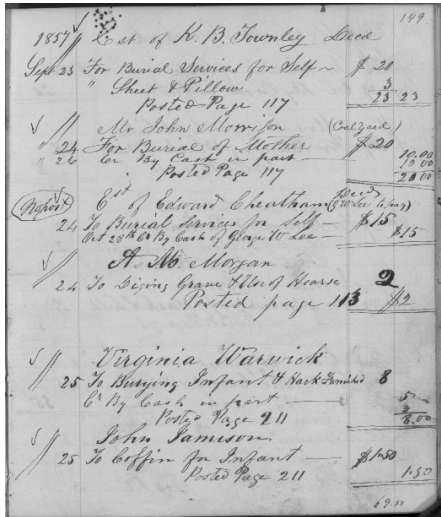 149
1857 Est of K. B. Townley Decd
Sept 23 For Burial Services for Self $20
" Sheet & Pillow 3
23 23
Posted Page 117
Mr. John Morrison (Coal Yard)
" 24 For Burial of Mother $20
" 26 Cr By Cash in part 10.00
10.00
Posted Page 117 20.00
No post Est of Edward Cheatham (Decd)
24 To Burial Services for Self $15
Oct 28th Cr By Cash of George W Lee $15
A. M. Morgan
24 To Diging Grave & Use of Hearse 2
Posted page 113 $2
Virginia Warwick
25 To Burying Infant & Hack Furnished 8
Cr By Cash in part 5
3
Posted Page 211 8.00
John Jamison
25 To Coffin for Infant $1.50
Posted Page 211 1.50
69.50